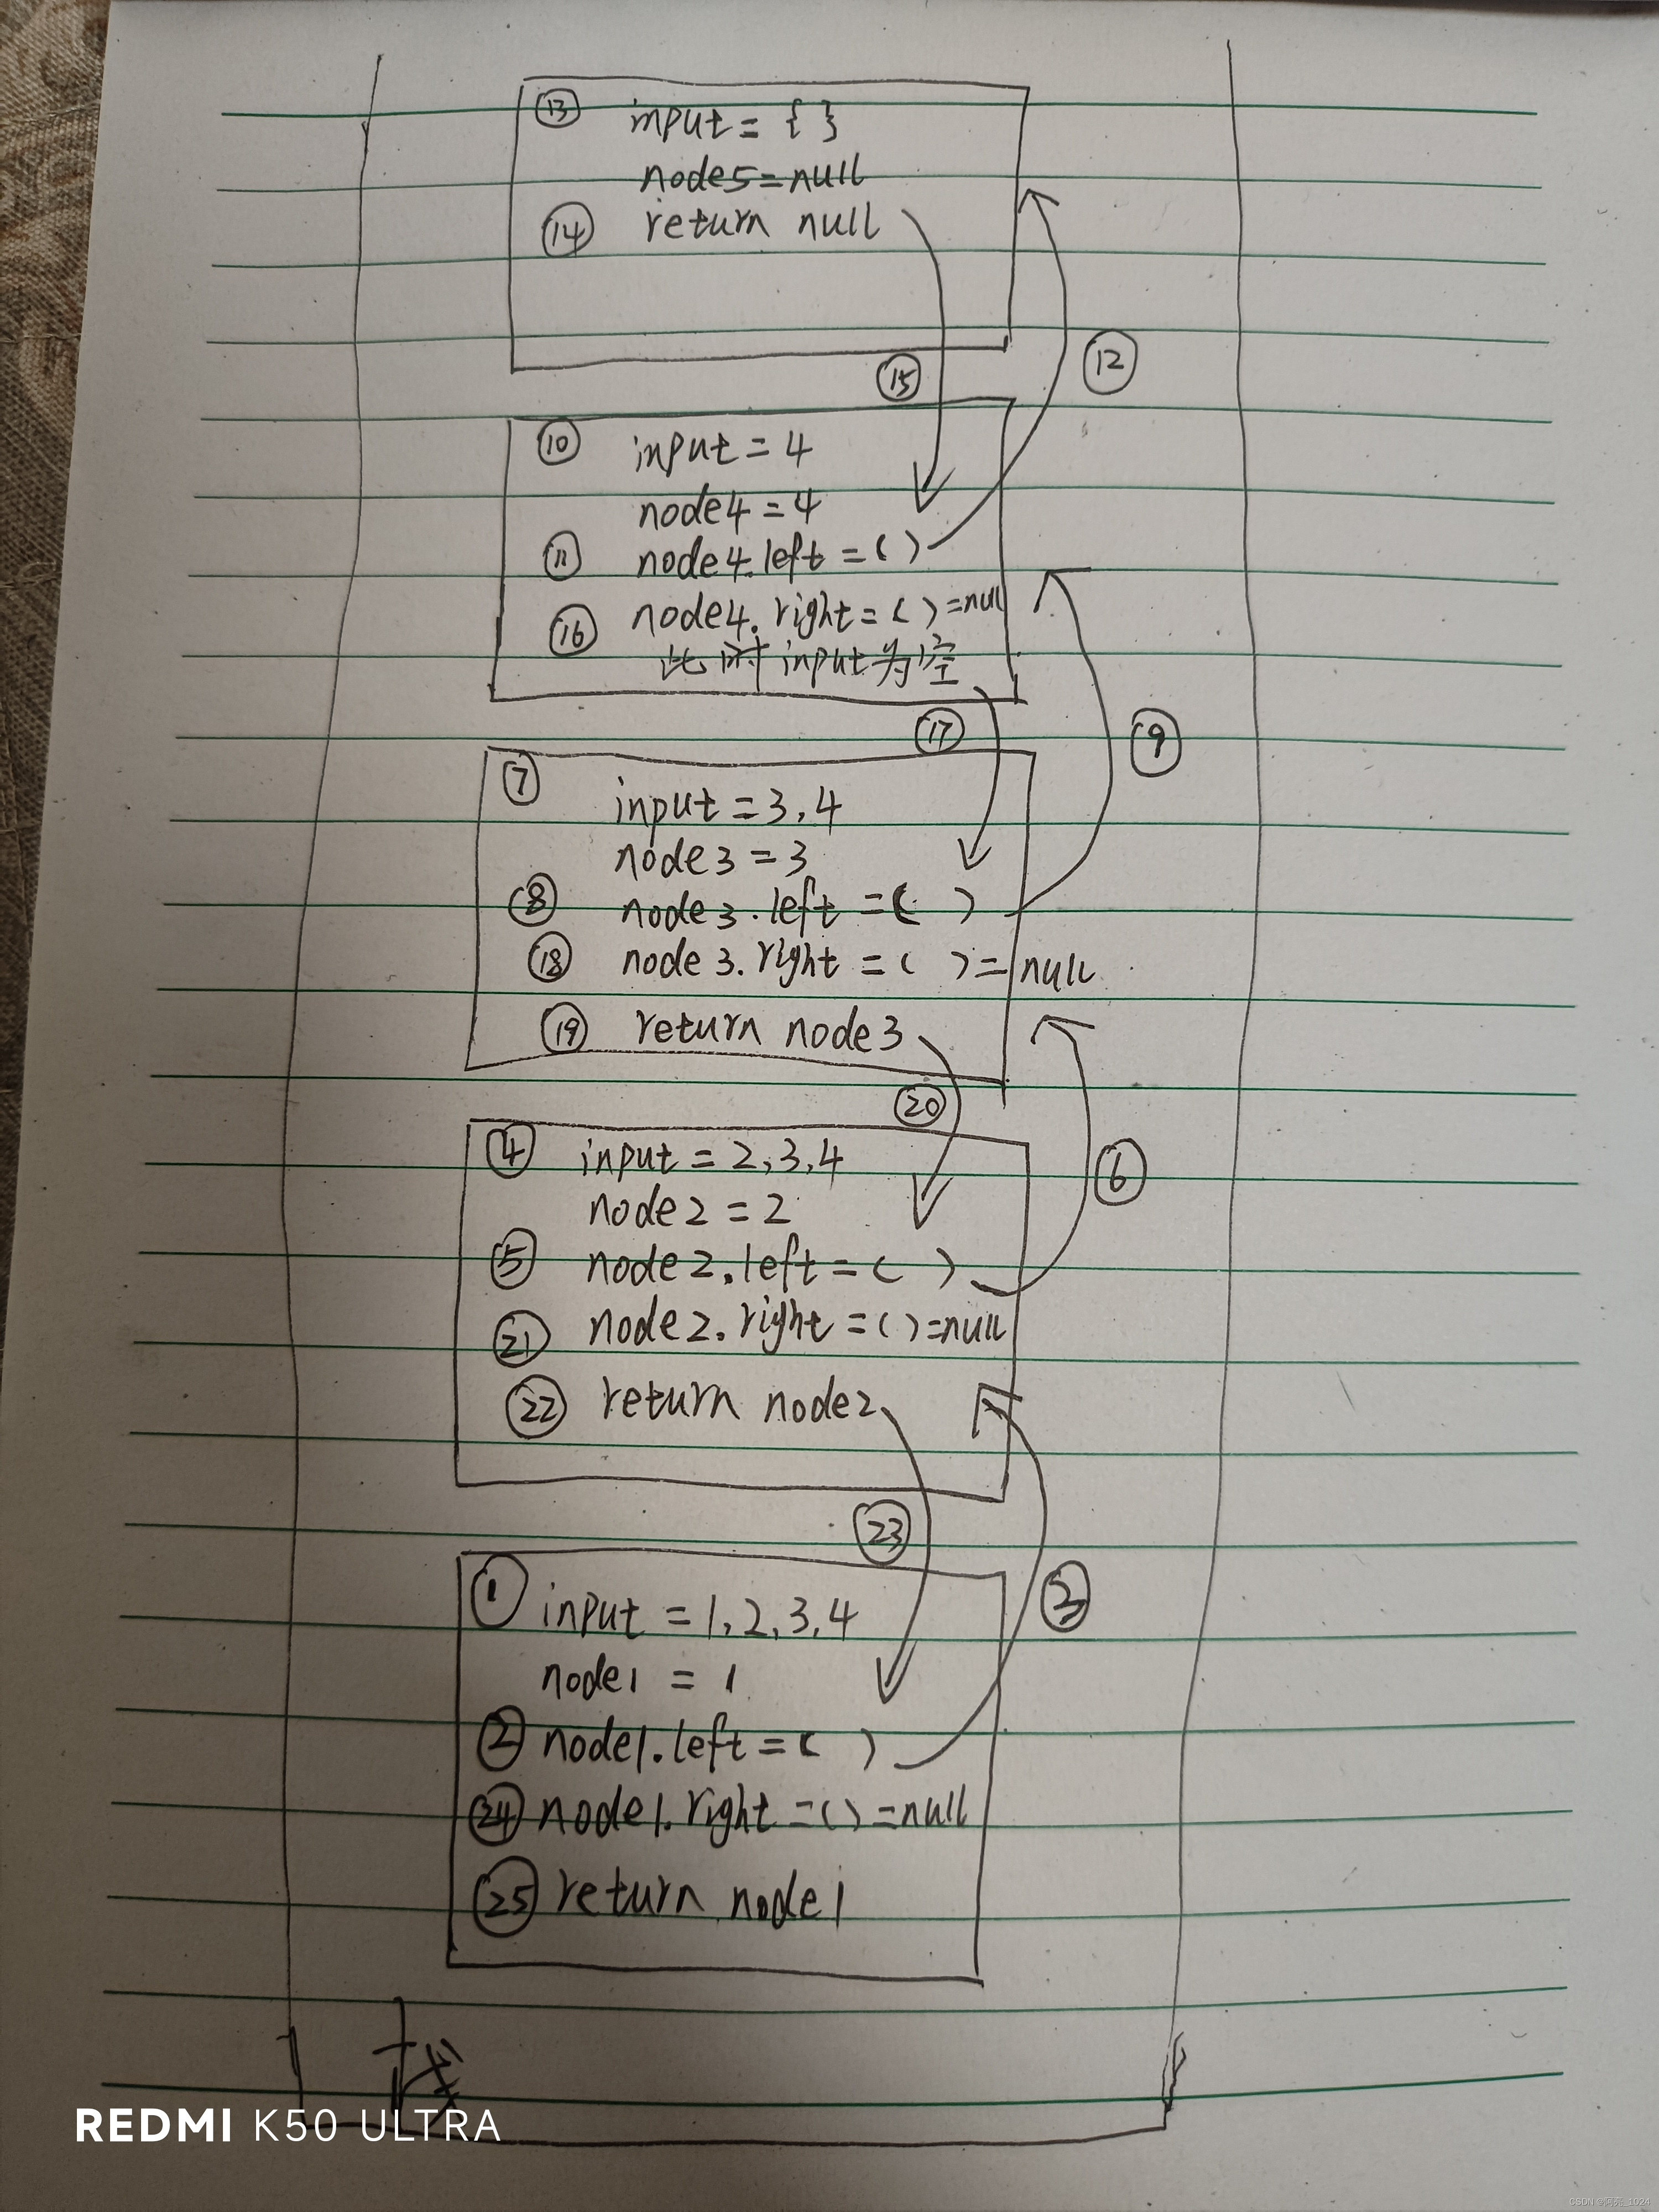 ⑬ input = { }
node5=null
⑭ return null
⑮
⑫
⑩ input = 4
node4 = 4
⑪ node4.left = ( )
⑯ node4.right = ( ) =null
此时input为空
⑰
⑨
⑦ input = 3,4
node3 = 3
⑧ node3.left = ( )
⑱ node3.right = ( ) = null
⑲ return node3
⑳
⑥
④ input = 2,3,4
node2 = 2
⑤ node2.left = ( )
㉑ node2.right = ( )=null
㉒ return node2
㉓
③
① input = 1,2,3,4
node1 = 1
② node1.left = ( )
㉔ node1.right = ( ) =null
㉕ return node1
栈
REDMI K50 ULTRA